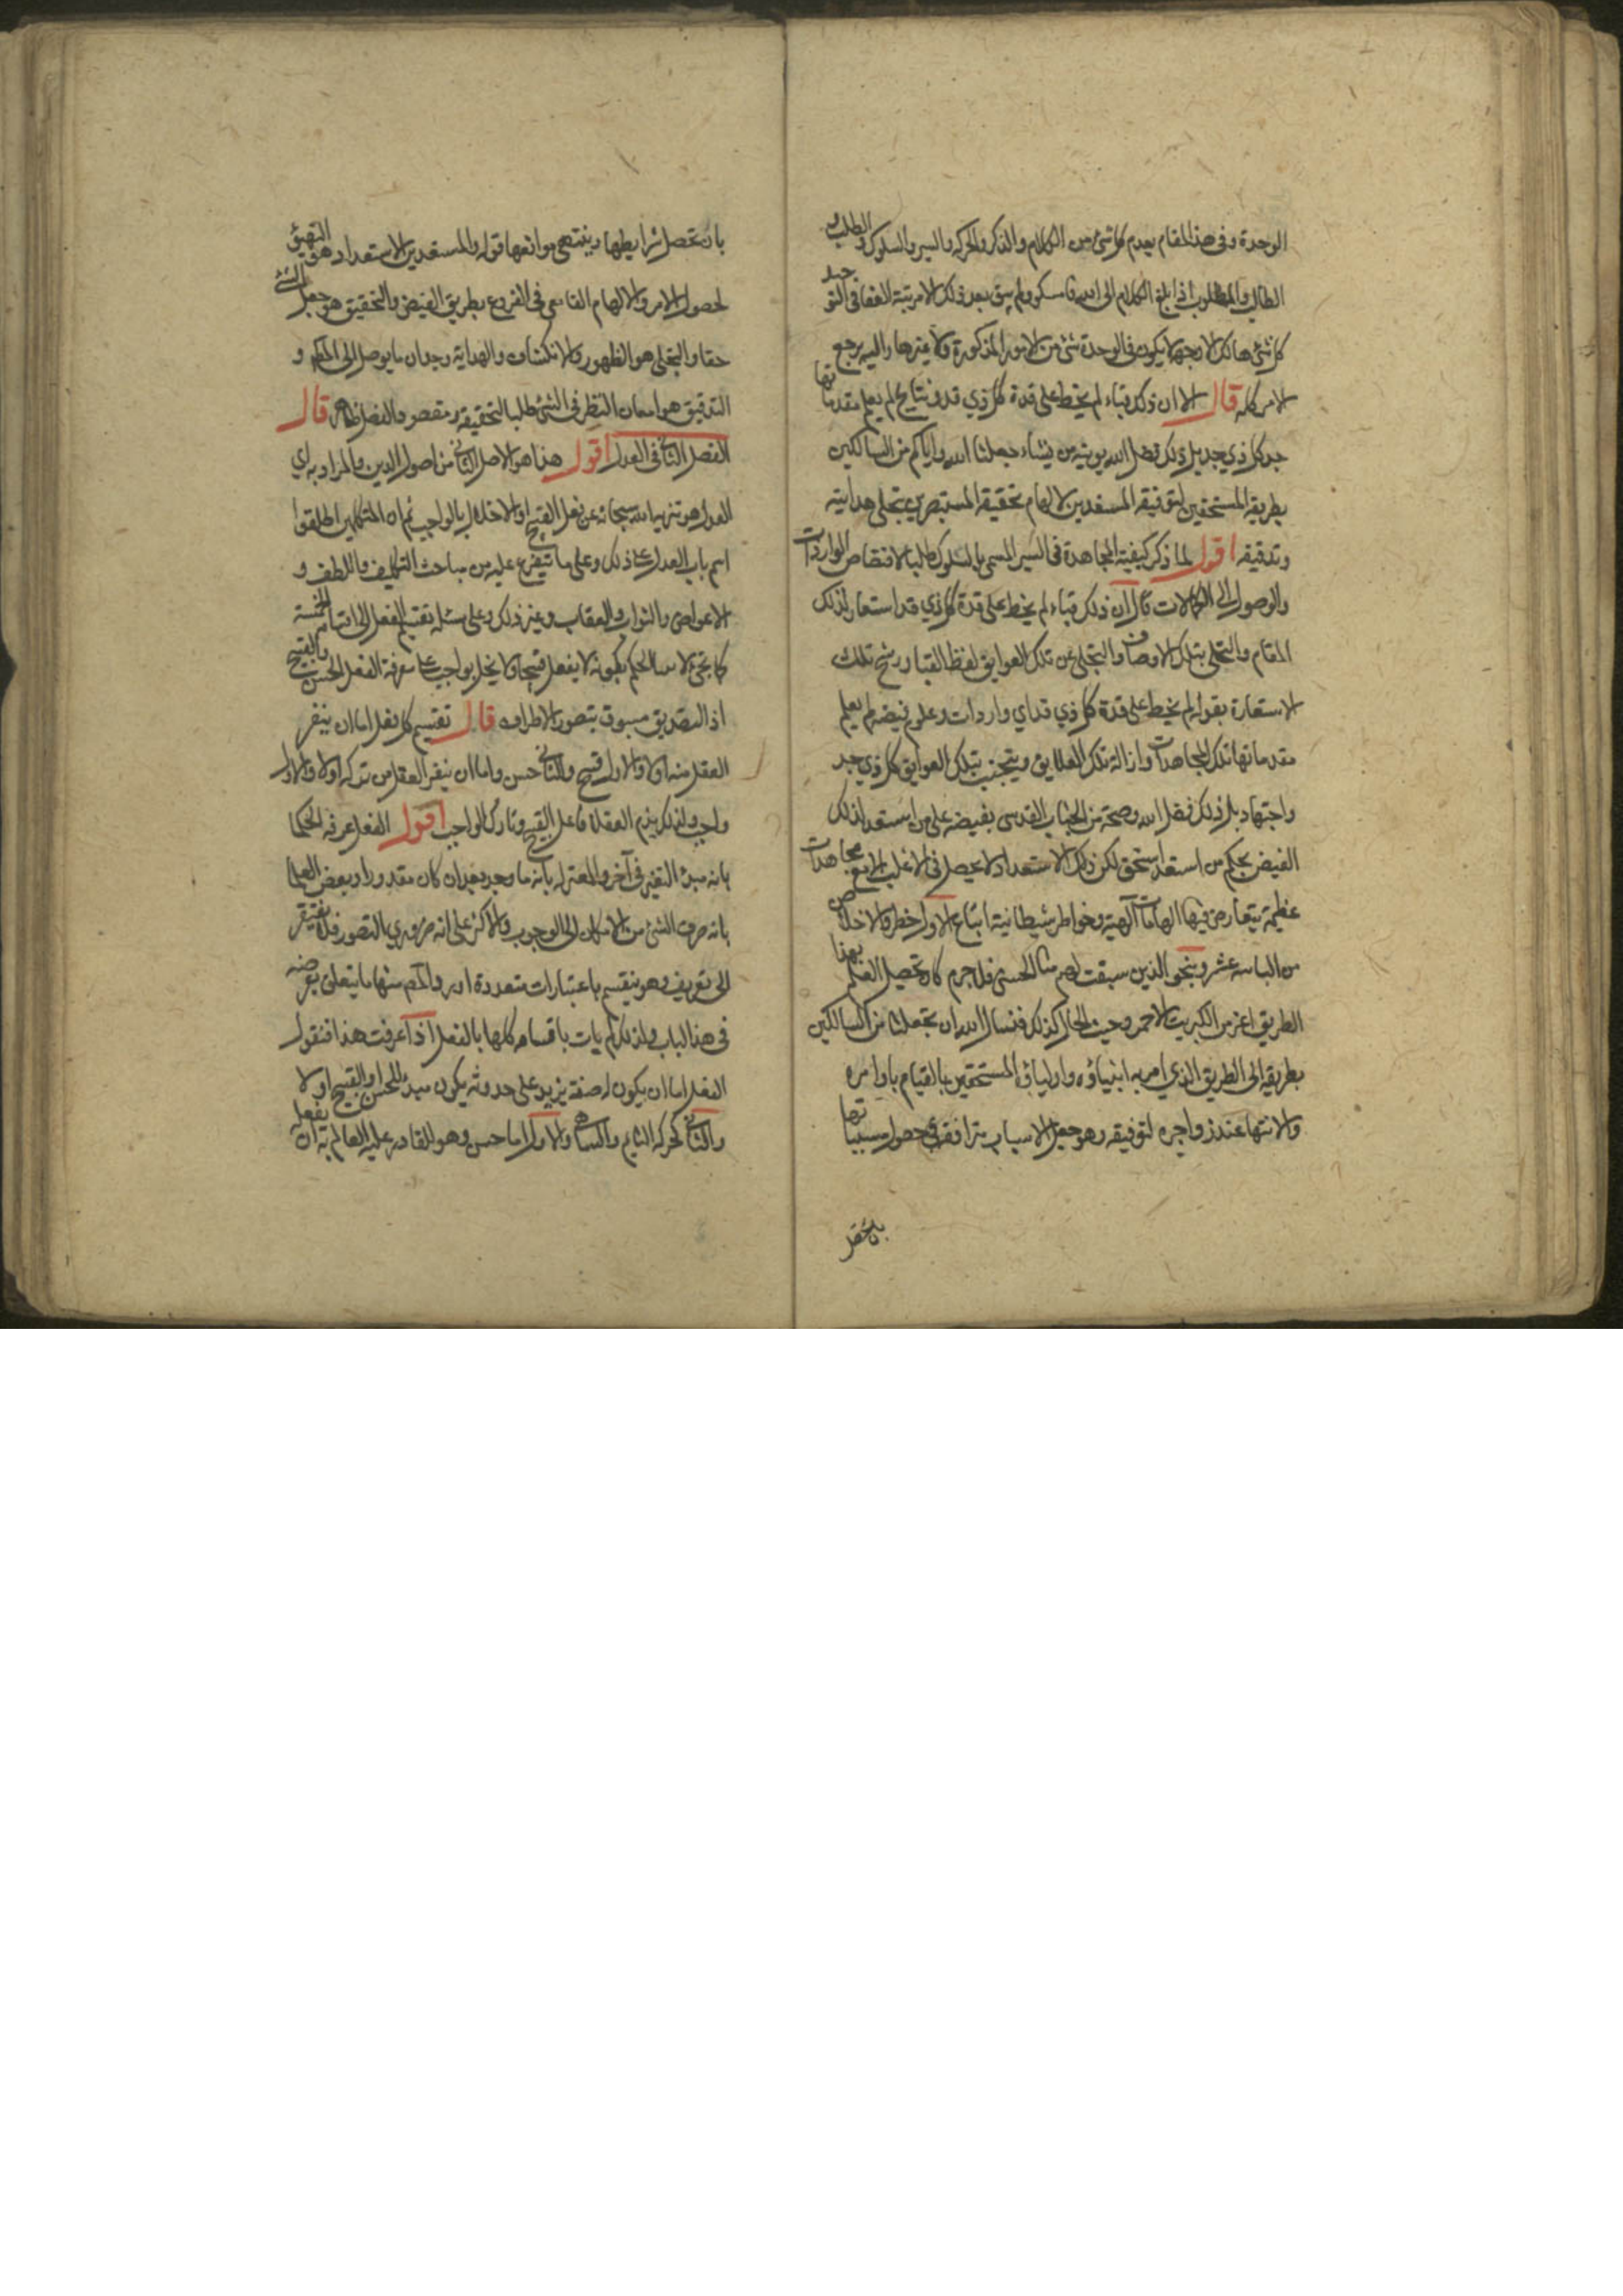 الوحدة وفى هذا المقام يعدم كل شئ من الكلام والذكر والحركه والسير والسلوك والطلب و
الطالب والمطلوب اذا بلغ الكلام الى الله فامسكو ولم يبق بعد ذلك الا مرتبة الفنا فى التوحيد
كل شئ هالك الا وجهه لا يكون فى الوحدة شئ من الامور المذكورة ولا غيرها واليه يرجع
الامر كله قال الا ان ذلك قباء لم يخط على قدة كل ذي قد ونتايج لم يعلم مقدماتها
جد كل ذي جد بل ذلك فضل الله يوتيه من يشاء جعلنا الله واياكم من السالكين
بطريقه المستحقين لتوفيقه المستعدين لالهام تحقيقه المستبصرين بتجلى هدايته
وتدقيقه اقول لما ذكر كيفية المجاهدة فى السير المسمى بالسلوك طلبا لاقتناص الواردات
والوصول الى الكمالات قال ان ذلك قباء لم يخط على قدة كل ذي قد استعار لذلك
المقام والتحلى بتلك الاوصاف والتخلى عن تلك العوايق لفظ القبا ورشح تلك
الاستعارة بقوله لم يخط على قدة كل ذي قد اي واردات وعلوم فيضه لم يعلم
مقدماتها تلك المجاهدات وازالة تلك العلايق ويتجنب بتلك العوايق كل ذي جد
واجتهاد بل ذلك فضل الله وصحة من الجناب القدسى بفيضه على من استعد لذلك
الفيض بحكم من استعد استحق لكن ذلك الاستعداد لا يحصل فى الاغلب الا مع مجاهدات
عظيمة يتعارض فيها الهامات آلهية وخواطر شيطانية اتباع الاول خطر والاخلاص
من الباسه عشر وينجو الذين سبقت لهم منا الحسنى فلا جرم كان تحصيل العلم بهذا
الطريق اعز من الكبريت الاحمر وحيث الحال كذلك فنسال الله ان يجعلنا من السالكين
بطريقه الى الطريق الذي امر به انبياؤه واولياؤه المستحقين بالقيام باوامره
والانتها عند زواجره لتوفيقه وهو جعل الاسباب متوافقه فى حصول مسبباتها
بان تحصل
بان تحصل شرايطها وينتهى موانعها قوله والمستعدين الاستعداد هو التهيئ
لحصول الامر والالهام القاء معنى فى الفروع بطريق الفيض والتحقيق هو جعل الشئ
حقا والتجلى هو الظهور والانكشاف والهداية وجدان ما يوصل الى المطلوب و
التدقيق هو امعان النظر فى الشئ طلبا لتحقيقه ومقصود الفصل ظاهر قال
الفصل الثانى فى العدل اقول هذا هو الاصل الثانى من اصول الدين والمراد به اي
العدل هو تنزيه الله سبحانه عن فعل القبيح او الاخلال بالواجب ثم ان المتكلمين اطلقوا
اسم باب العدل على ذلك وعلى ما يتفرع عليه من مباحث التكليف واللطف و
الاعواض والثواب والعقاب وغير ذلك وعلى مسئله تقسيم الفعل الى اقسامه الخمسة
اذ التصديق مسبوق بتصور الاطراف قال تقسيم كل فعل اما ان ينفر
العقل منه اولا والاول قبيح والثانى حسن واما ان ينفر العقل من تركه اولا والاول
واجب ولذلك يذم العقلا فاعل القبيح وتارك الواجب اقول الفعل عرفه الحكما
بانه مبدء التغير فى آخر والمعتزله بانه ما وجد بعد ان كان مقدورا وبعض العلما
بانه صرف الشئ من الامكان الى الوجوب والاكثر على انه ضروري التصور فلا يفتقر
الى تعريف وهو ينقسم باعتبارات متعددة امور والاهم منها ما يتعلق بغرضه
فى هذا الباب ولذلك لم يات باقسامه كلها بالفعل اذا عرفت هذا فنقول
الفعل اما ان يكون له صفة يزيد على حدوثه يكون مبدء للحسن او القبيح او لا
والثانى كحركه النائم والساهى والاول اما حسن وهو للقادر عليه العالم به ان يفعله